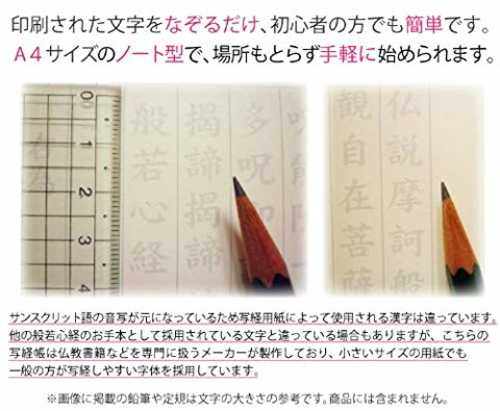 印刷された文字をなぞるだけ、初心者の方でも簡単です。
A4サイズのノート型で、場所もとらず手軽に始められます。
0
1
2
3
4
般若心経
掲諦掲諦
多呪即
仏説摩訶般
観自在菩薩
サンスクリット語の音写が元になっているため写経用紙によって使用される漢字は違っています。
他の般若心経のお手本として採用されている文字と違っている場合もありますが、こちらの
写経帳は仏教書籍などを専門に扱うメーカーが製作しており、小さいサイズの用紙でも
一般の方が写経しやすい字体を採用しています。
※画像に掲載の鉛筆や定規は文字の大きさの参考です。商品には含まれません。